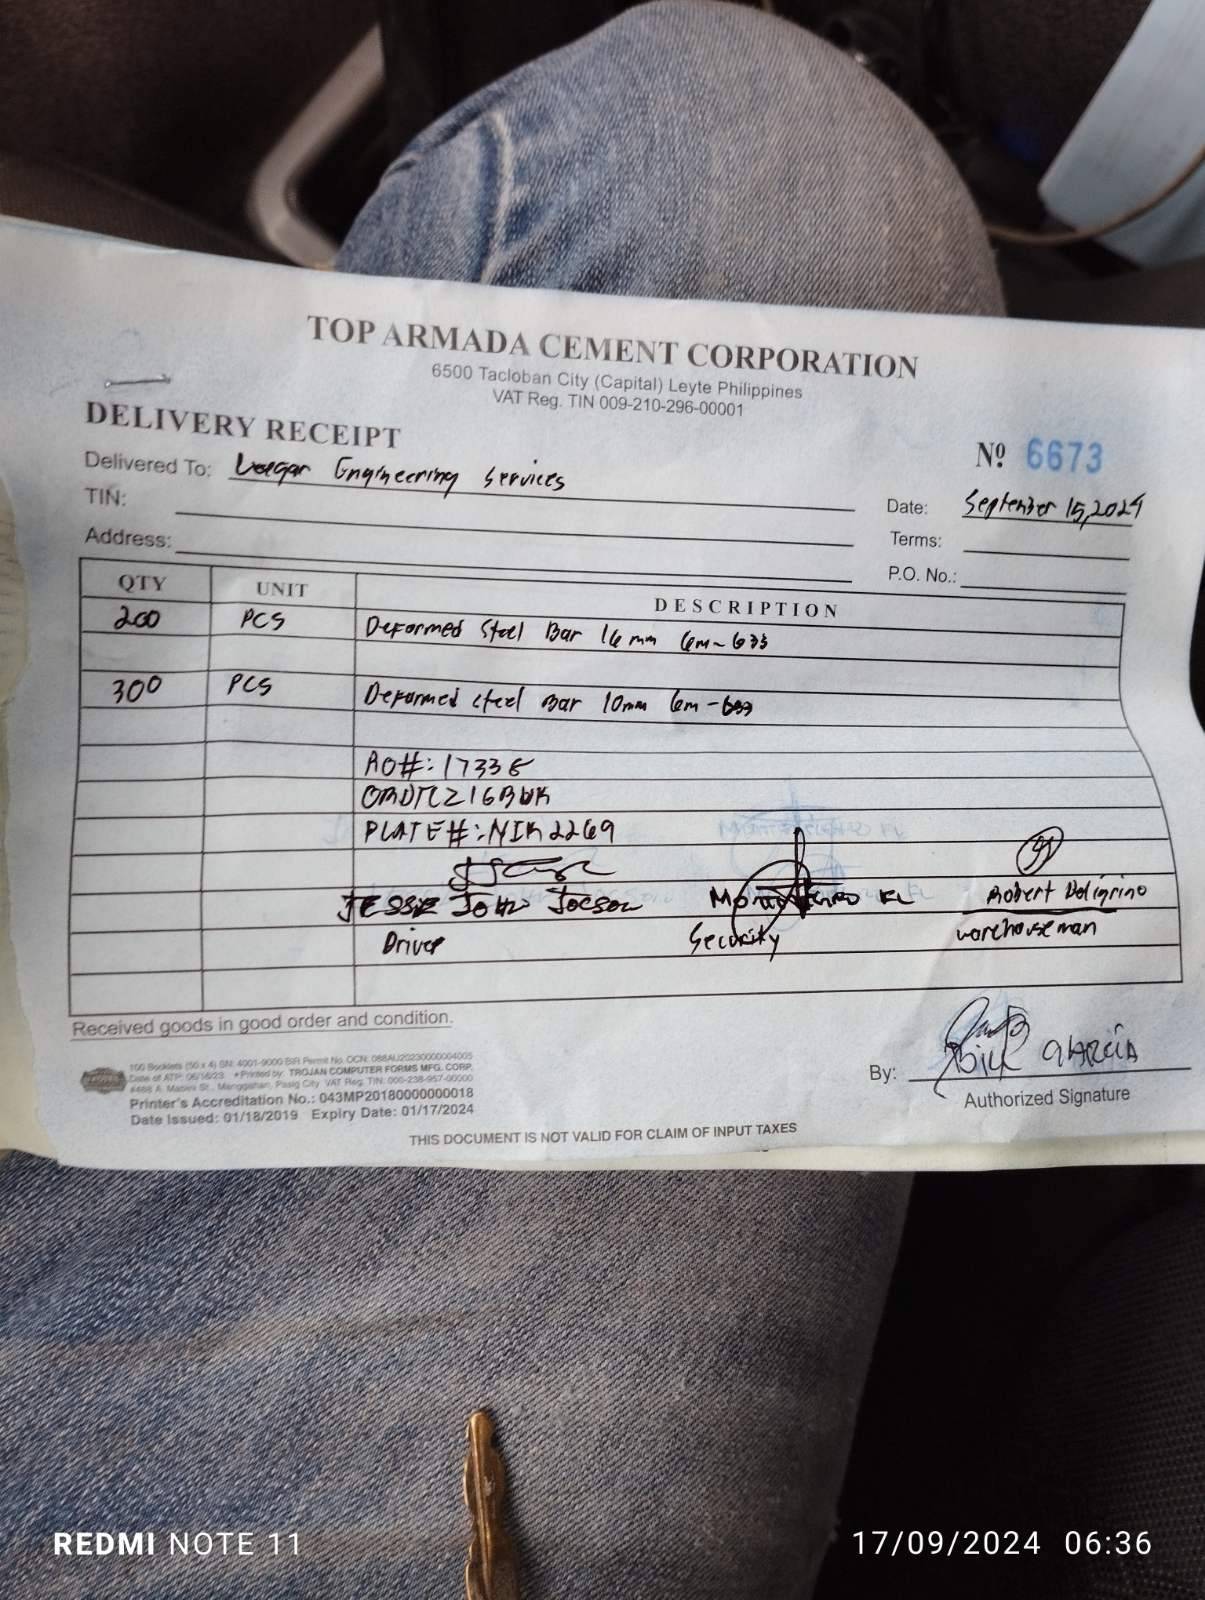 TOP ARMADA CEMENT CORPORATION
6500 Tacloban City (Capital) Leyte Philippines
VAT Reg. TIN 009-210-296-00001
DELIVERY RECEIPT
Nº 6673
Delivered To: Engineering Services
Date: September 15, 2024
TIN:
Terms:
Address:
P.O. No.:
QTY UNIT DESCRIPTION
200 PCS Deformed Steel Bar 16mm 6m-G33
300 PCS Deformed Steel Bar 10mm 6m-G33
AO#: 17335
PLATE#: NIK2269
JESSIE JOHN Jocson
Robert Deligrino
Driver
Security
warehouseman
Received goods in good order and condition.
By: GARCIA
Authorized Signature
100 Booklets (50 x 4) SN: 4001-9000 BIR Permit No. OCN: 088AU20230000004005
Date of ATP: 06/16/23 *Printed by: TROJAN COMPUTER FORMS MFG. CORP.
4488 A. Mabini St., Manggahan, Pasig City VAT Reg. TIN: 000-238-957-00000
Printer's Accreditation No.: 043MP20180000000018
Date Issued: 01/18/2019 Expiry Date: 01/17/2024
THIS DOCUMENT IS NOT VALID FOR CLAIM OF INPUT TAXES
REDMI NOTE 11
17/09/2024 06:36